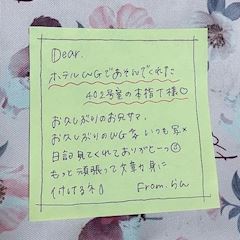 Dear.
ホテルWGであそんでくれた
402号室の本指丁様♡
お久しぶりのお兄サマ。
お久しぶりのWG☆ いつも写×
日記 見てくれてありがとーっ
もっと頑張って欠算力 身に
付けるネ
From. らん